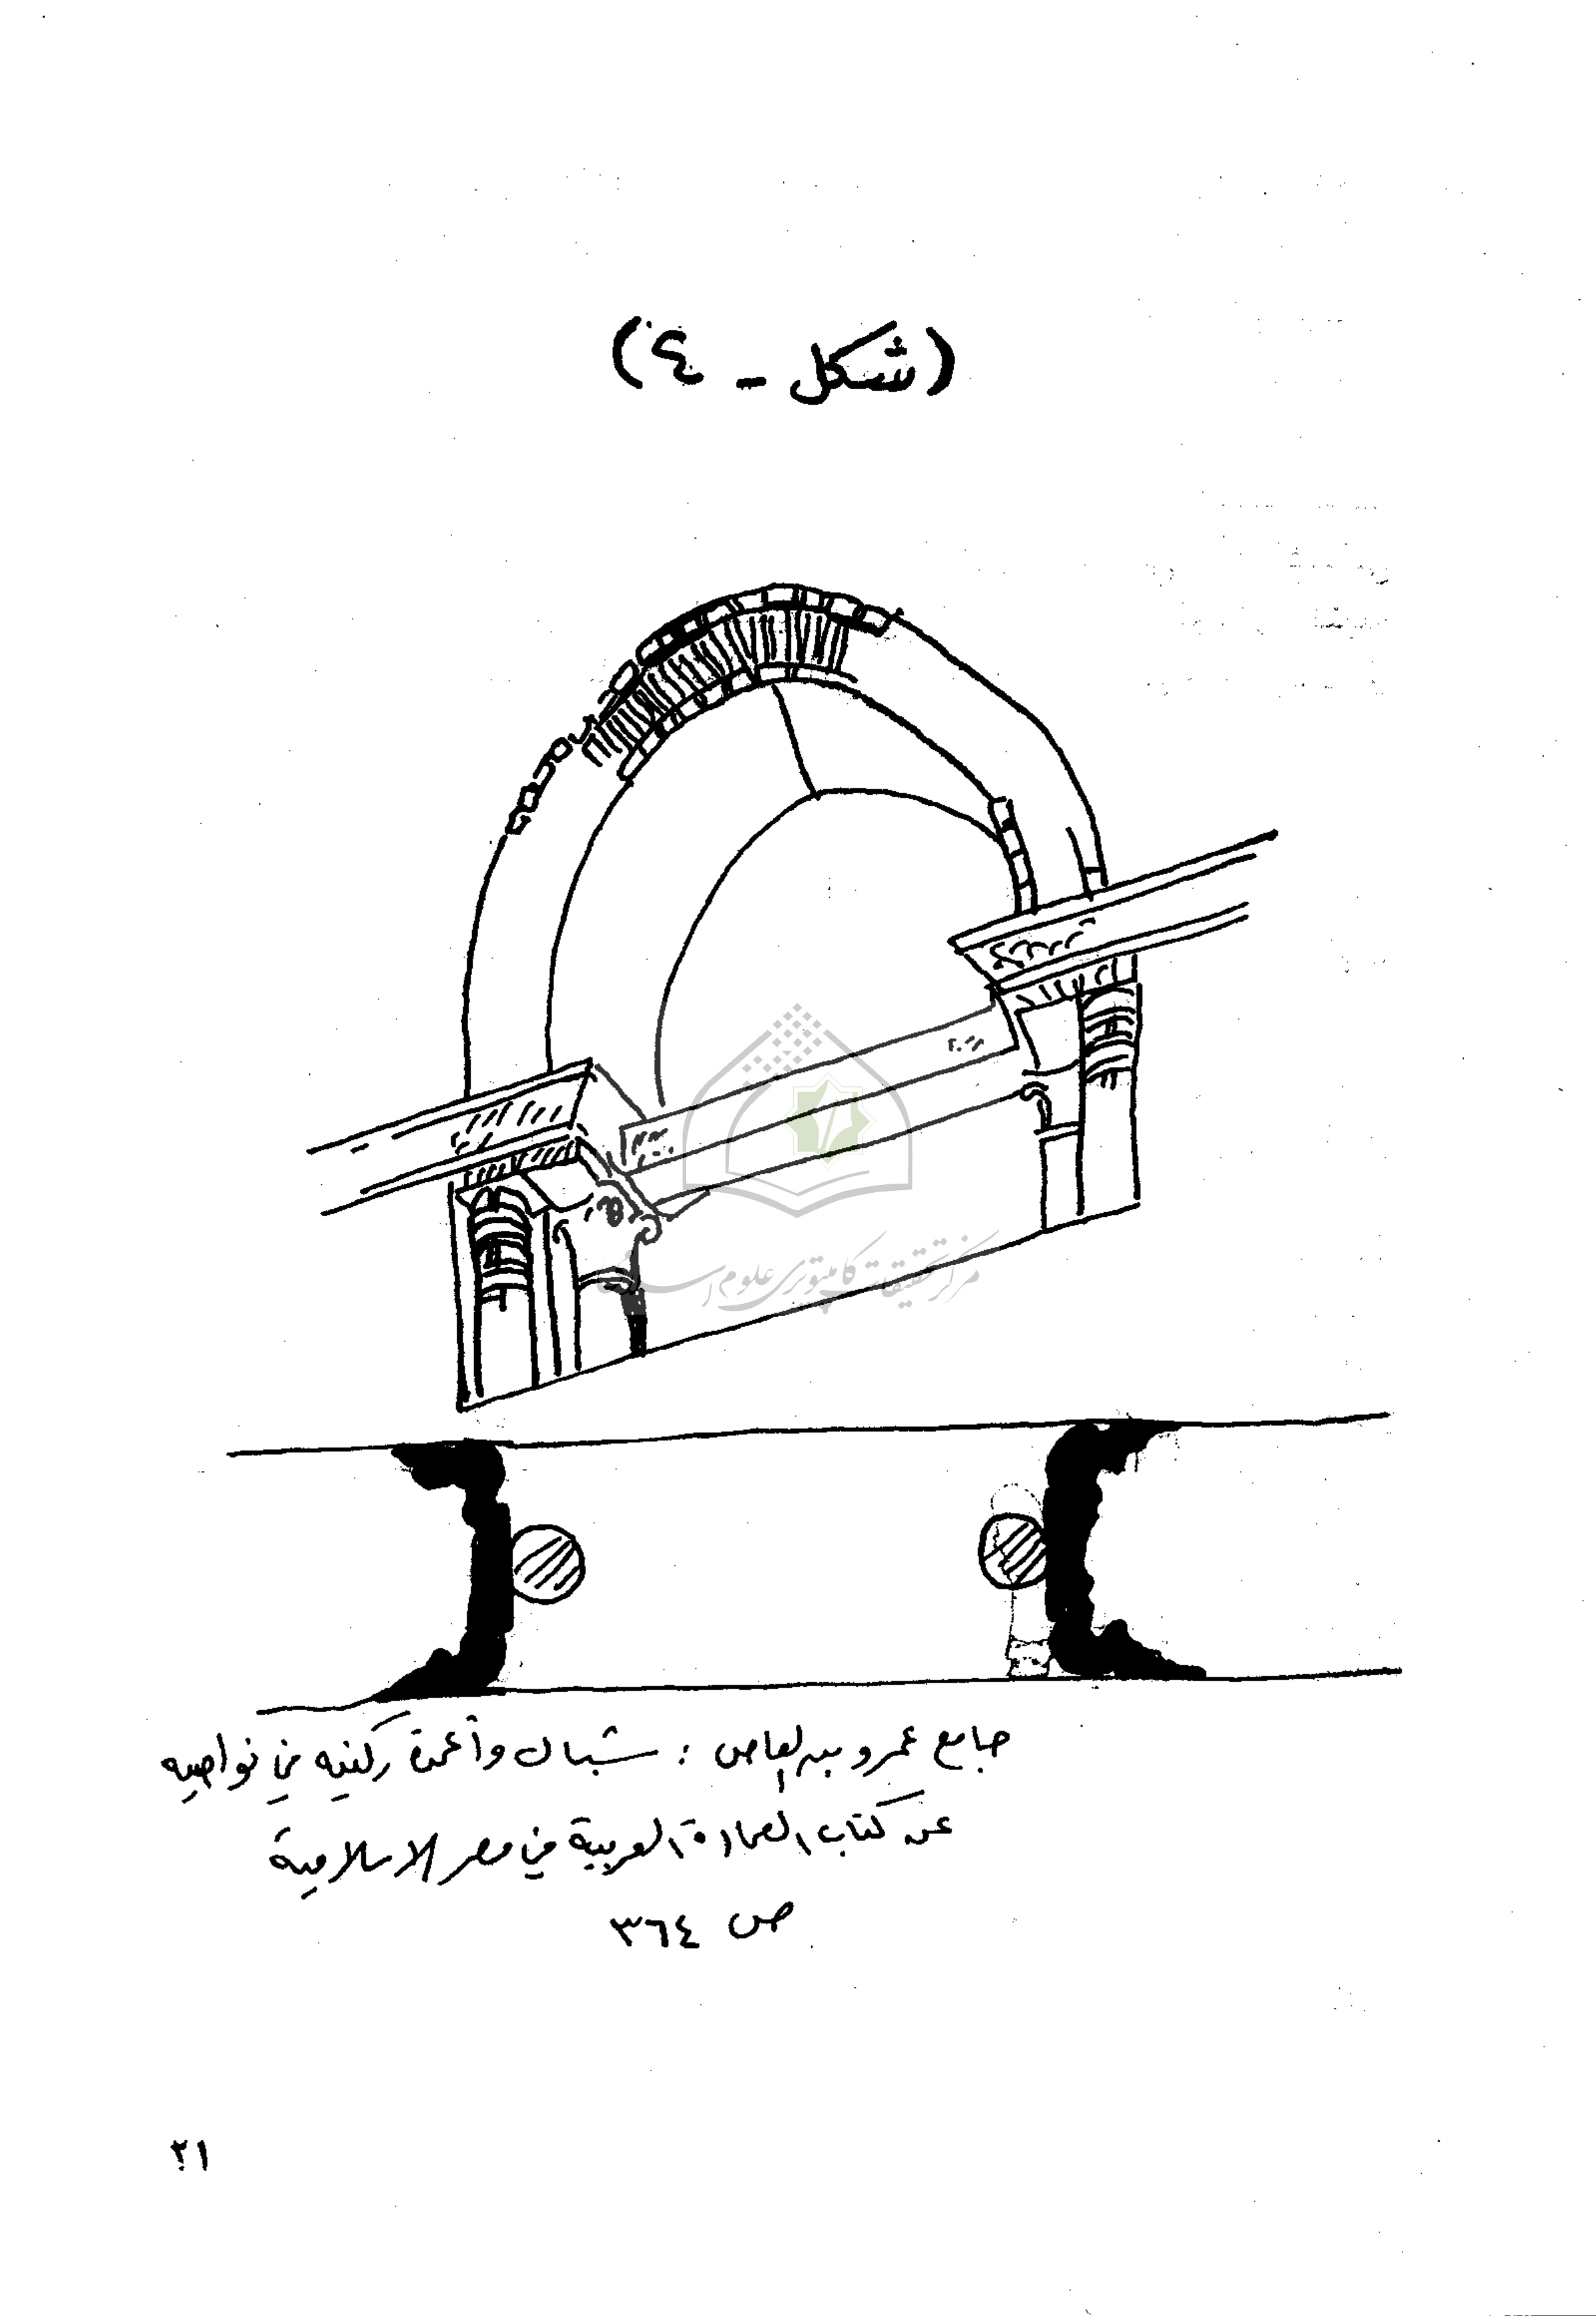 (شكل - ٤)
مركز تحقيقات كامپيوترى علوم اسلامى
جامع عمرو بن العاص : شباك وأعمدة ركنيه في نواصيه
عن كتاب العمارة العربية في مصر الاسلامية
ص ٣٦٤
٢١